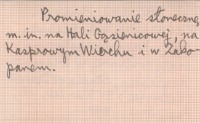 Promieniowanie słoneczne,
m. in. na Hali Gąsienicowej, na
Kasprowym Wierchu i w Zako-
panem.